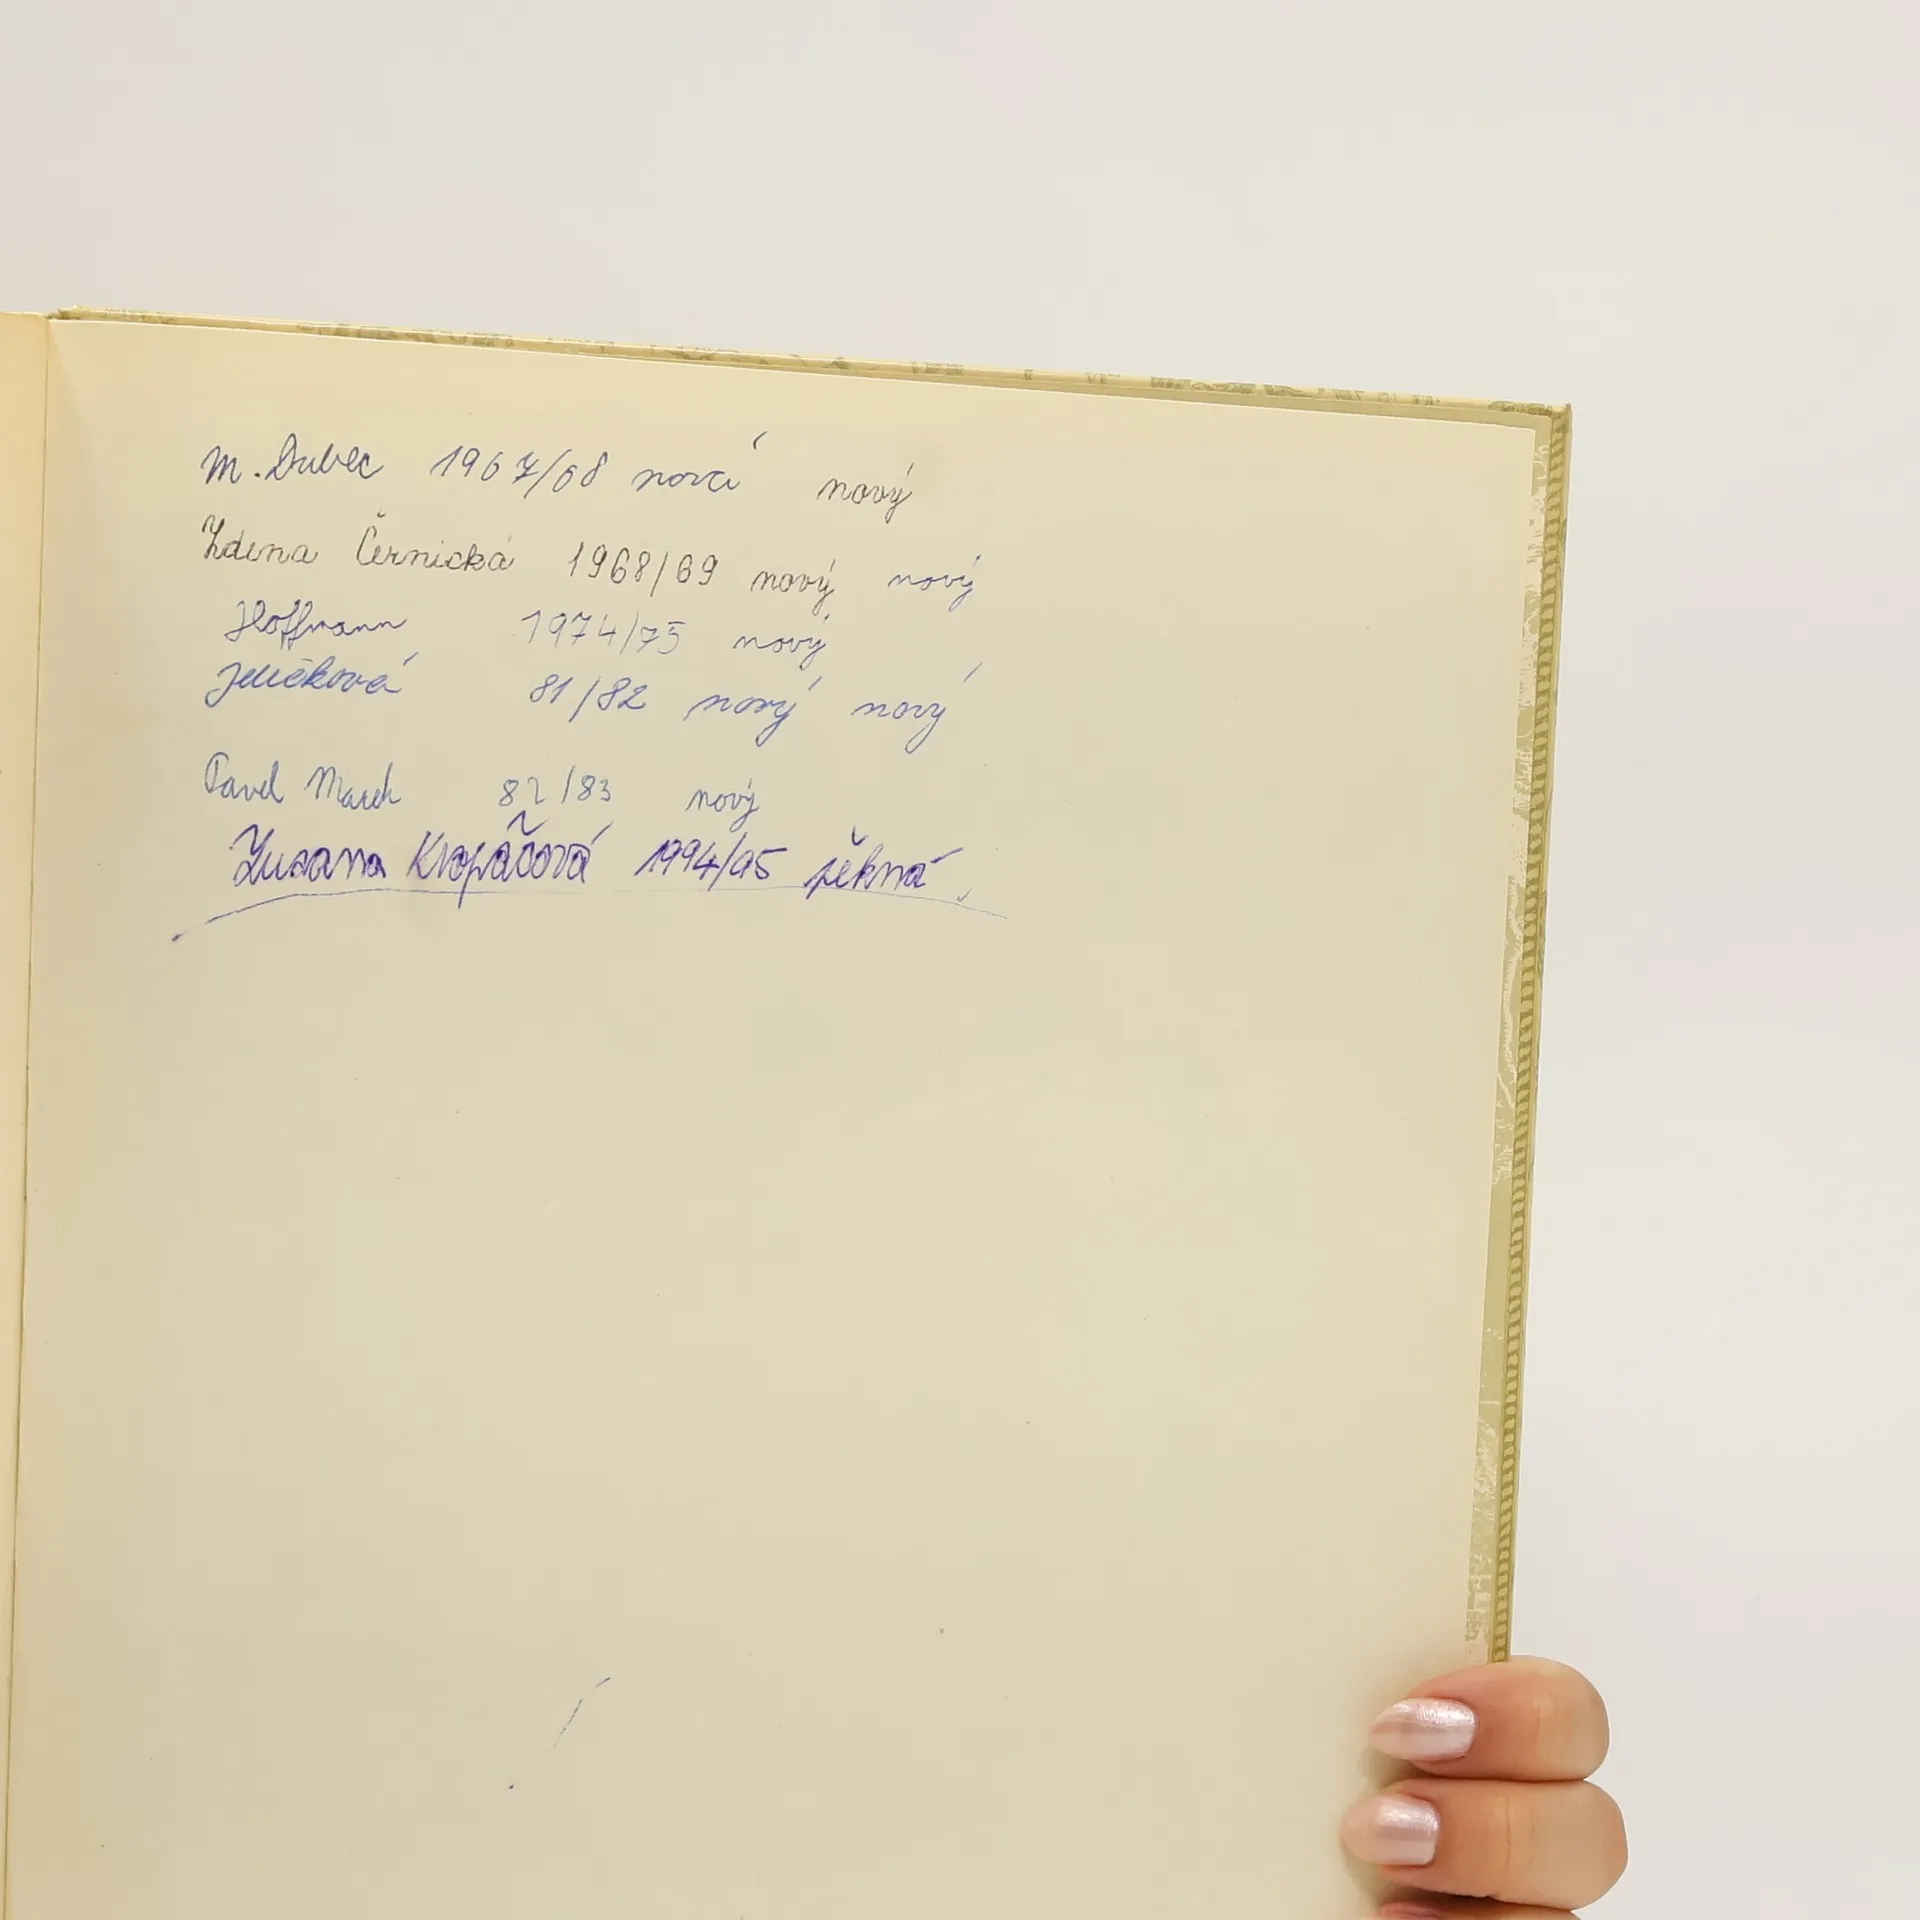 M. Dubec 1967/68 nová nový
Zdena Černická 1968/69 nový nový
Hoffmann 1974/75 nový
81/82 nový nový
Pavel Marek 82/83 nový
Zuzana Kropáčová 1994/95 pěkná